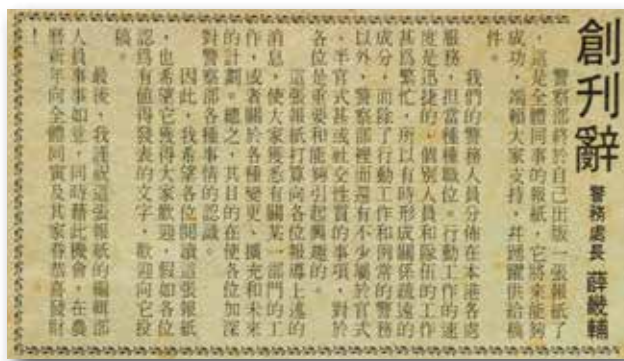 創刊辭
警務處長 薛畿輔
警察部終於自己出版一張報紙了
，這是全體同事的報紙，它將來能夠
成功，端賴大家支持，幷踴躍供給稿
件。
我們的警務人員分佈在本港各處
服務，担當種種職位。行動工作的速
度是迅捷的，個別人員和隊伍的工作
甚爲繁忙，所以有時形成關係疏遠的
成分，而除了行動工作和例常的警務
以外，警察部裡面還有不少屬於官式
、半官式甚或社交性質的事項，對於
各位是重要和能夠引起興趣的。
這張報紙打算向各位報導上述的
消息，使大家獲悉有關某一部門的工
作，或者關於各種變更、擴充和未來
的計劃。總之，其目的在使各位加深
對警察部各種事情的認識。
因此，我希望各位閱讀這張報紙
，也希望它獲得大家歡迎，假如各位
認爲有値得發表的文字，歡迎向它投
稿。
最後，我謹祝這張報紙的編輯部
人員事事如意，同時藉此機會，在農
曆新年向全體同寅及其家眷恭喜發財
！